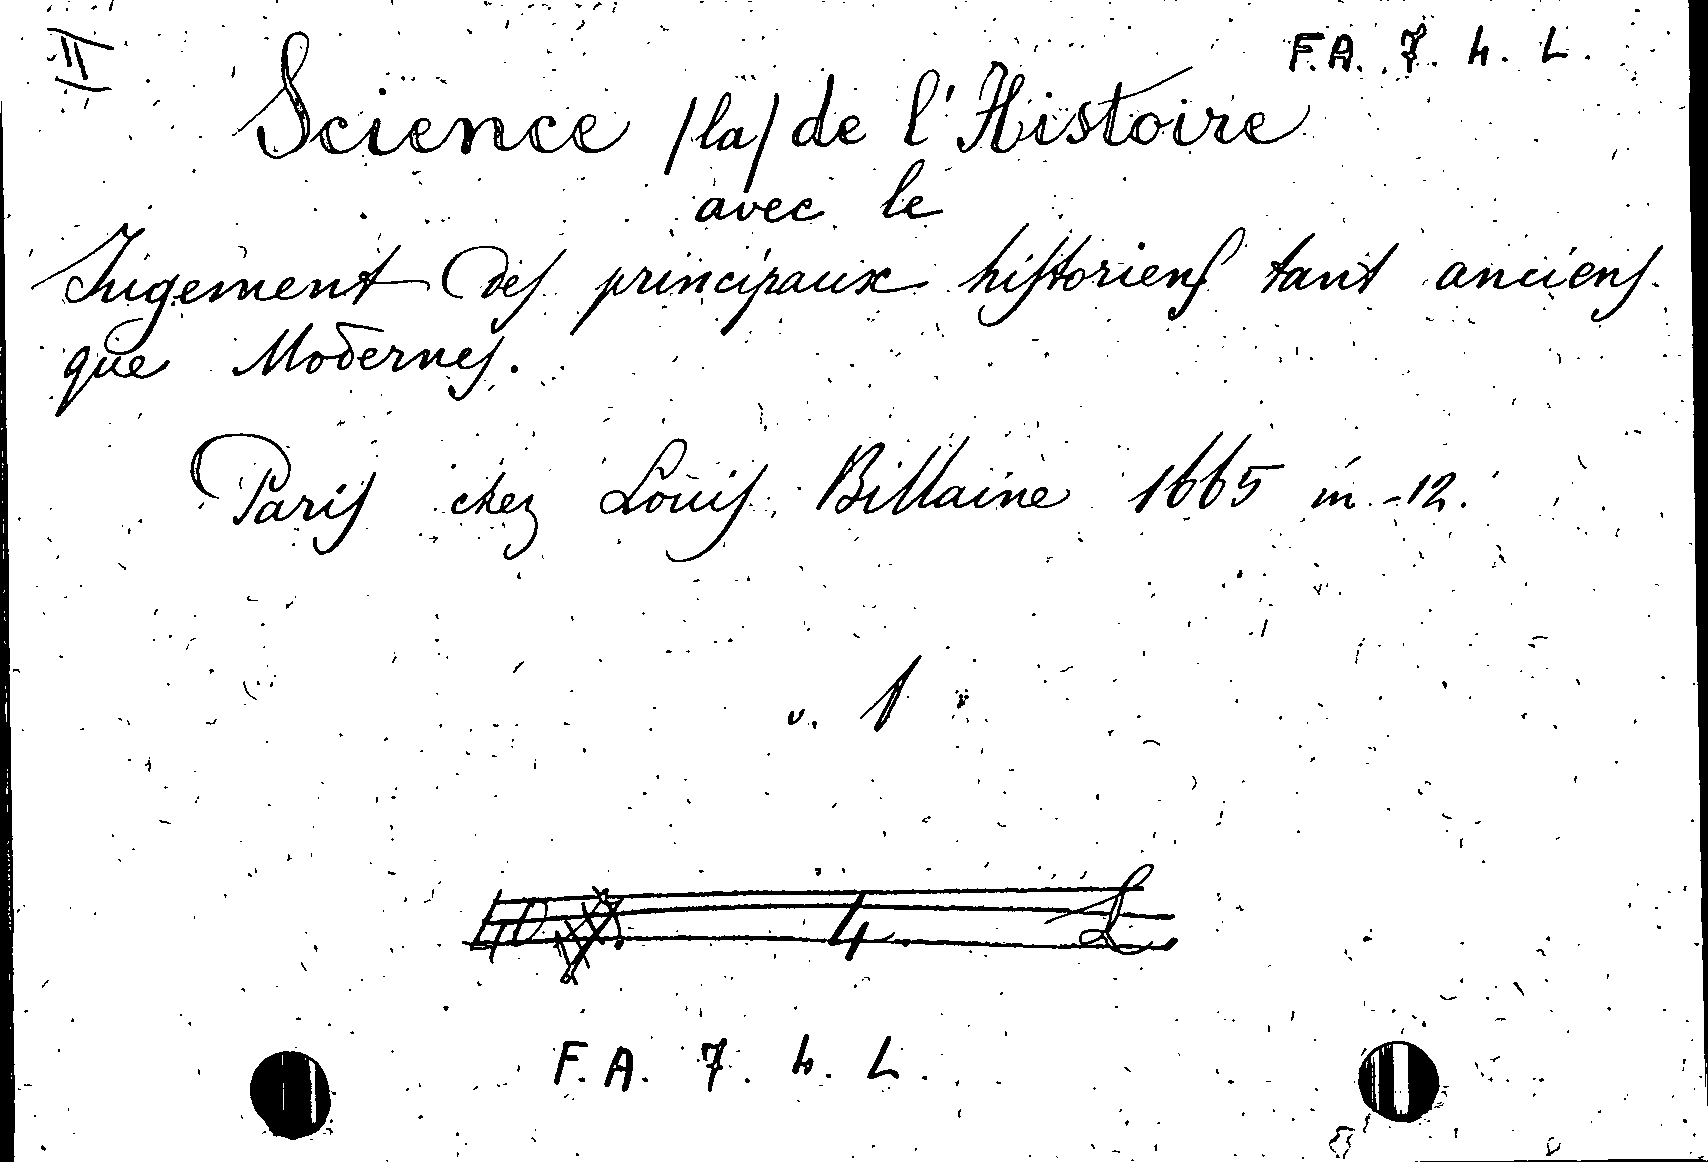 II
F.A. 7. 4. L.
Science /la/ de l'Histoire
avec le
Jugement des principaux historiens tant anciens
que Modernes.
Paris chez Louis Billaine 1665 in-12.
v. 1
4 L.
F.A. 7. 4. L.